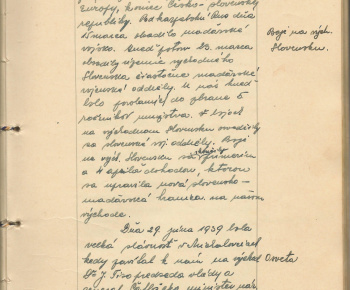 Europy, koniec Česko-slovenskej
republiky. Podkarpatskú Rus dňa
15 marca obsadilo maďarské
vojsko. Hneď potom 23. marca
obsadily územie východného
Slovenska čiastočne maďarské
vojenské oddiely. U nás hneď
bolo povolaných do zbrane 5
ročníkov mužstva. V bojoch
na východnom Slovensku osvedčily
sa slovenské voj. oddiely. Boje
na vých. Slovensku sa skončily prímerím
a 4 apríla dohodou, ktorou
sa upravila nová slovensko-
maďarská hranica na našom
východe.
Boje na vých.
Slovensku.
Dňa 29. júna 1939 bola
veľká slávnosť v Michalovciach
kedy zavítal k nám na východ
Dr. J. Tiso predseda vlády a
general minister nár.